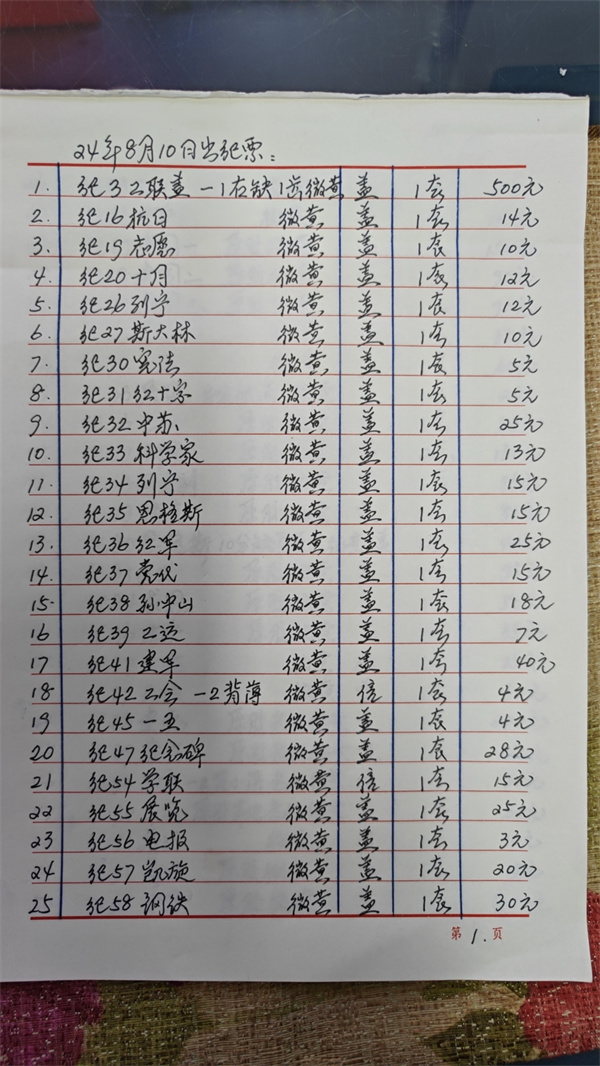 24年8月10日出纪票：
1. 纪3工联盖一1右缺1齿微黄 盖 1套 500元
2. 纪16抗日 微黄 盖 1套 14元
3. 纪19志愿 微黄 盖 1套 10元
4. 纪20十月 微黄 盖 1套 12元
5. 纪26列宁 微黄 盖 1套 12元
6. 纪27斯大林 微黄 盖 1套 10元
7. 纪30宪法 微黄 盖 1套 5元
8. 纪31红十字 微黄 盖 1套 5元
9. 纪32中苏 微黄 盖 1套 25元
10. 纪33科学家 微黄 盖 1套 13元
11. 纪34列宁 微黄 盖 1套 15元
12. 纪35恩格斯 微黄 盖 1套 15元
13. 纪36红军 微黄 盖 1套 25元
14. 纪37党代 微黄 盖 1套 15元
15. 纪38孙中山 微黄 盖 1套 18元
16 纪39工运 微黄 盖 1套 7元
17 纪41建军 微黄 盖 1套 40元
18 纪42工会 一2背薄 微黄 信 1套 4元
19 纪45一五 微黄 盖 1套 4元
20 纪47纪念碑 微黄 盖 1套 28元
21 纪54学联 微黄 信 1套 15元
22 纪55展览 微黄 盖 1套 25元
23 纪56电报 微黄 盖 1套 3元
24 纪57凯旋 微黄 盖 1套 20元
25 纪58钢铁 微黄 盖 1套 30元
第 1. 页